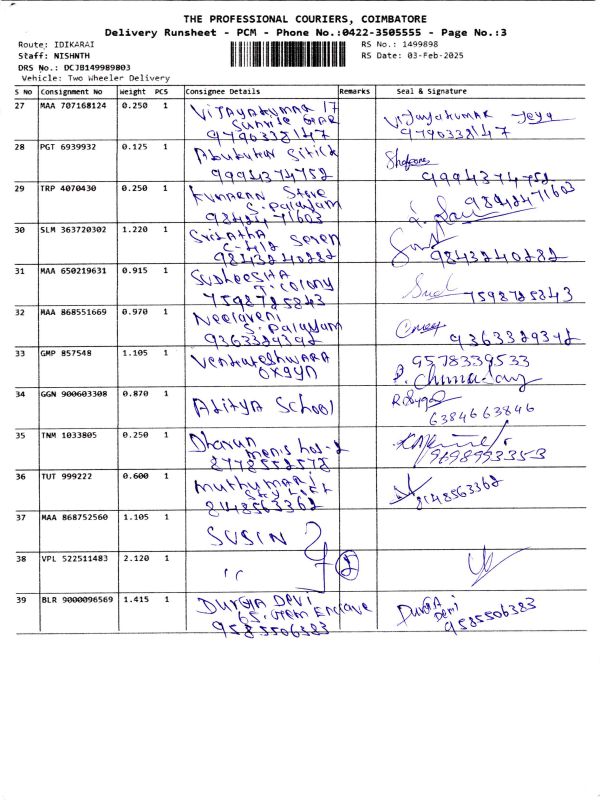 THE PROFESSIONAL COURIERS, COIMBATORE
Delivery Runsheet - PCM - Phone No.:0422-3505555 - Page No.:3
Route: IDIKARAI RS No.: 1499898
Staff: NISHNTH RS Date: 03-Feb-2025
DRS No.: DCJB149989803
Vehicle: Two Wheeler Delivery
S No Consignment No Weight PCS Consignee Details Remarks Seal & Signature
27 MAA 707168124 0.250 1 Vijayakumar 17 Vijayakumar Jeya
Sunrise
9790338147 9790338147
28 PGT 6939932 0.125 1 Abubukar Sitick
9994374752 9994374752
29 TRP 4070430 0.250 1 Kumaran Store
S. Palayam
9842471603 9842471603
30 SLM 363720302 1.220 1 Srilatha Seren
9843240282 9843240282
31 MAA 650219631 0.915 1 Sudheesha
T. Colony
7598725843 7598725843
32 MAA 868551669 0.970 1 Neelaveni
S. Palayam
9363329392 9363329392
33 GMP 857548 1.105 1 Venkateshwara 9578339533
Oxgyn
34 GGN 900603308 0.870 1 Aditya School
6384663846
35 TNM 1033805 0.250 1 Dharun
8778552578 9698993353
36 TUT 999222 0.600 1 Muthumari
8148563362 8148563362
37 MAA 868752560 1.105 1 SUSIN
38 VPL 522511483 2.120 1 " 2
39 BLR 9000096569 1.415 1 Durga Devi Durga
65. Green Enclave Devi
9585506383 9585506383